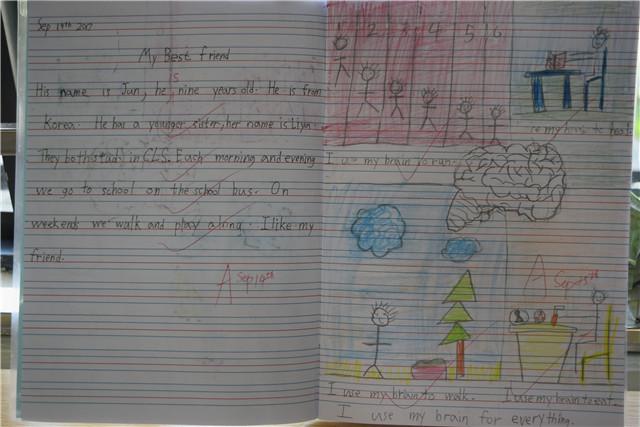 Sep 14th 2017
My Best friend
is
His name is Jun, he nine years old. He is from
Korea. He has a younger sister, her name is Liya.
They both study in CLS. Each morning and evening
we go to school on the school bus. On
weekends we walk and play along. I like my
friend.
A Sep 14th
1 2 3 4 5 6
use my brain to read.
I use my brain to run.
A Sep
I use my brain to walk.
I use my brain to eat.
I use my brain for everything.